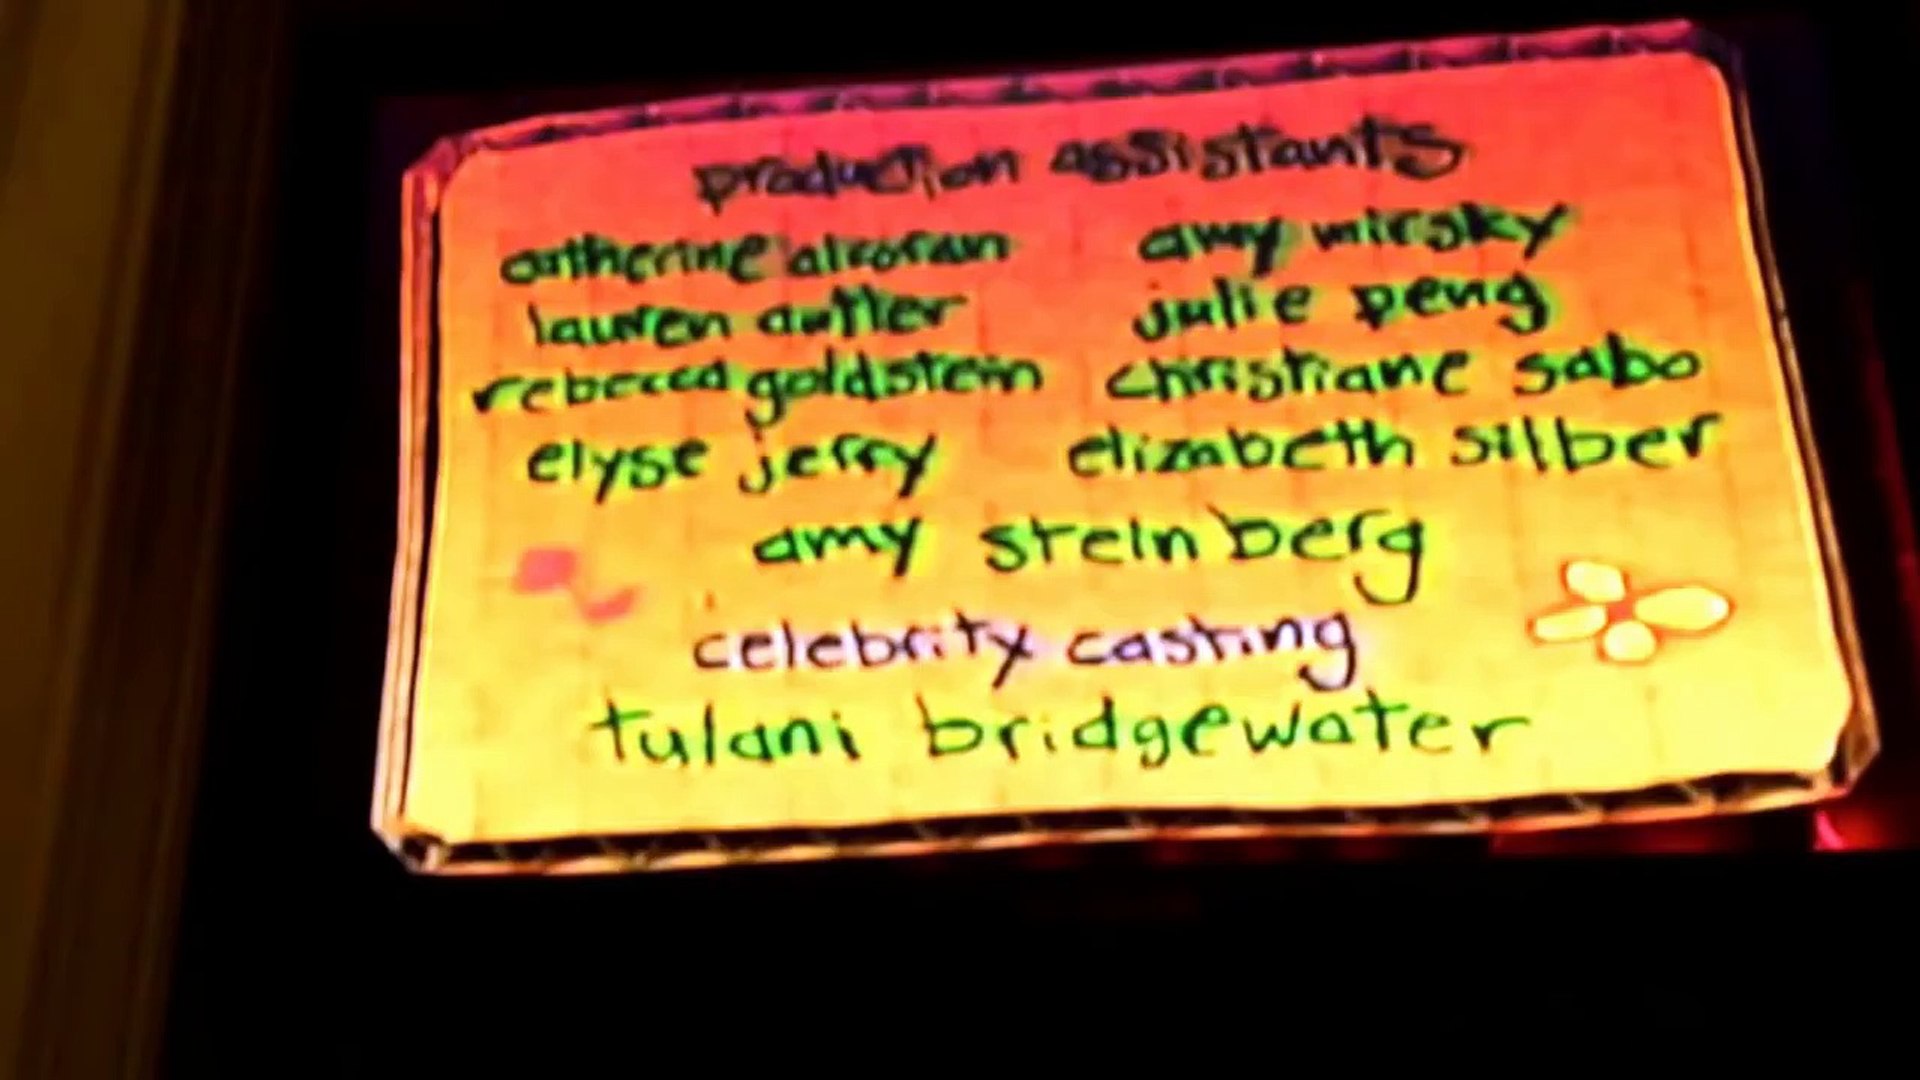 production assistants
catherine alcoran amy mirsky
lauren autler julie peng
rebecca goldstein christiane sabo
elyse jerry elizabeth silber
amy steinberg
celebrity casting
tulani bridgewater